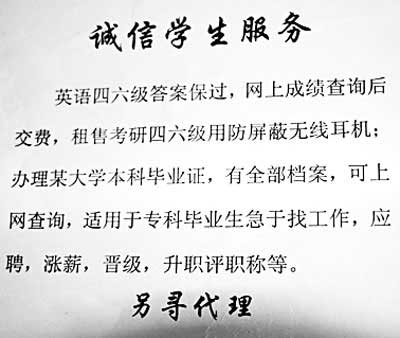 诚信学生服务
英语四六级答案保过，网上成绩查询后
交费，租售考研四六级用防屏蔽无线耳机；
办理某大学本科毕业证，有全部档案，可上
网查询，适用于专科毕业生急于找工作，应
聘，涨薪，晋级，升职评职称等。
另寻代理